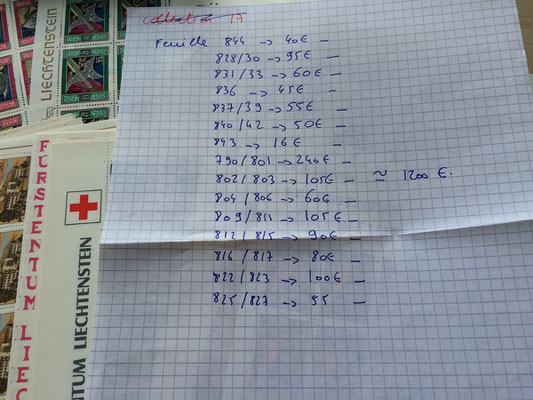 collection 17
Feuille 844 -> 40€ -
828/30 -> 95€ -
831/33 -> 60€ -
836 -> 45€ -
837/39 -> 55€ -
840/42 -> 50€ -
843 -> 16€ -
790/801 -> 240€ -
802/803 -> 105€ - ≃ 1200 €.
804/806 -> 60€ -
809/811 -> 105€ -
812/815 -> 90€ -
816/817 -> 80€ -
822/823 -> 100€ -
825/827 -> 55 -
LIECHTENSTEIN
FÜRSTENTUM LIEC
NTUM LIECHTENSTEIN